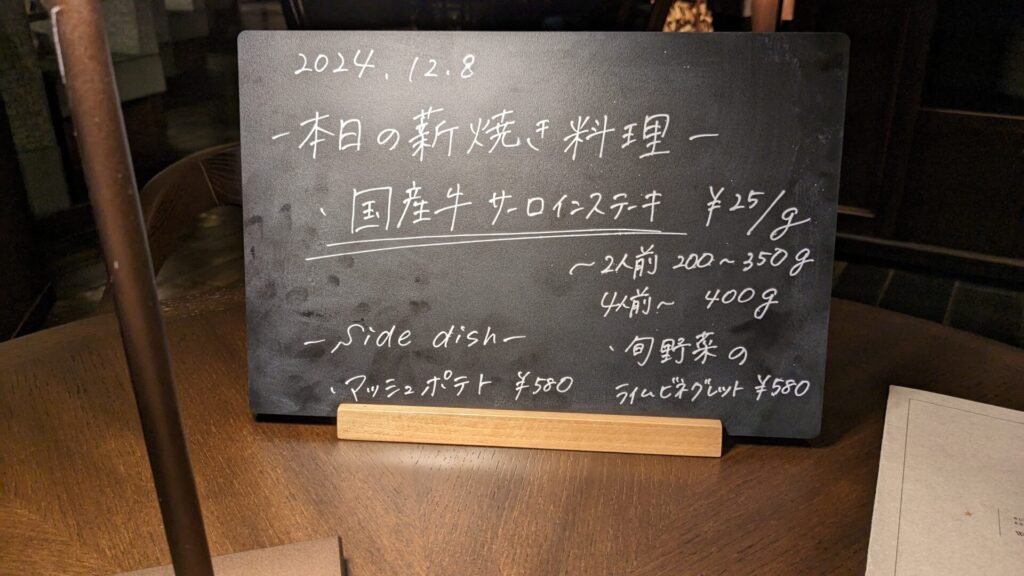 2024.12.8
－本日の薪焼き料理－
・国産牛 サーロインステーキ ¥25/g
～2人前 200～350g
4人前～ 400g
－Side dish－
・マッシュポテト ¥580
・旬野菜の
ライムビネグレット ¥580